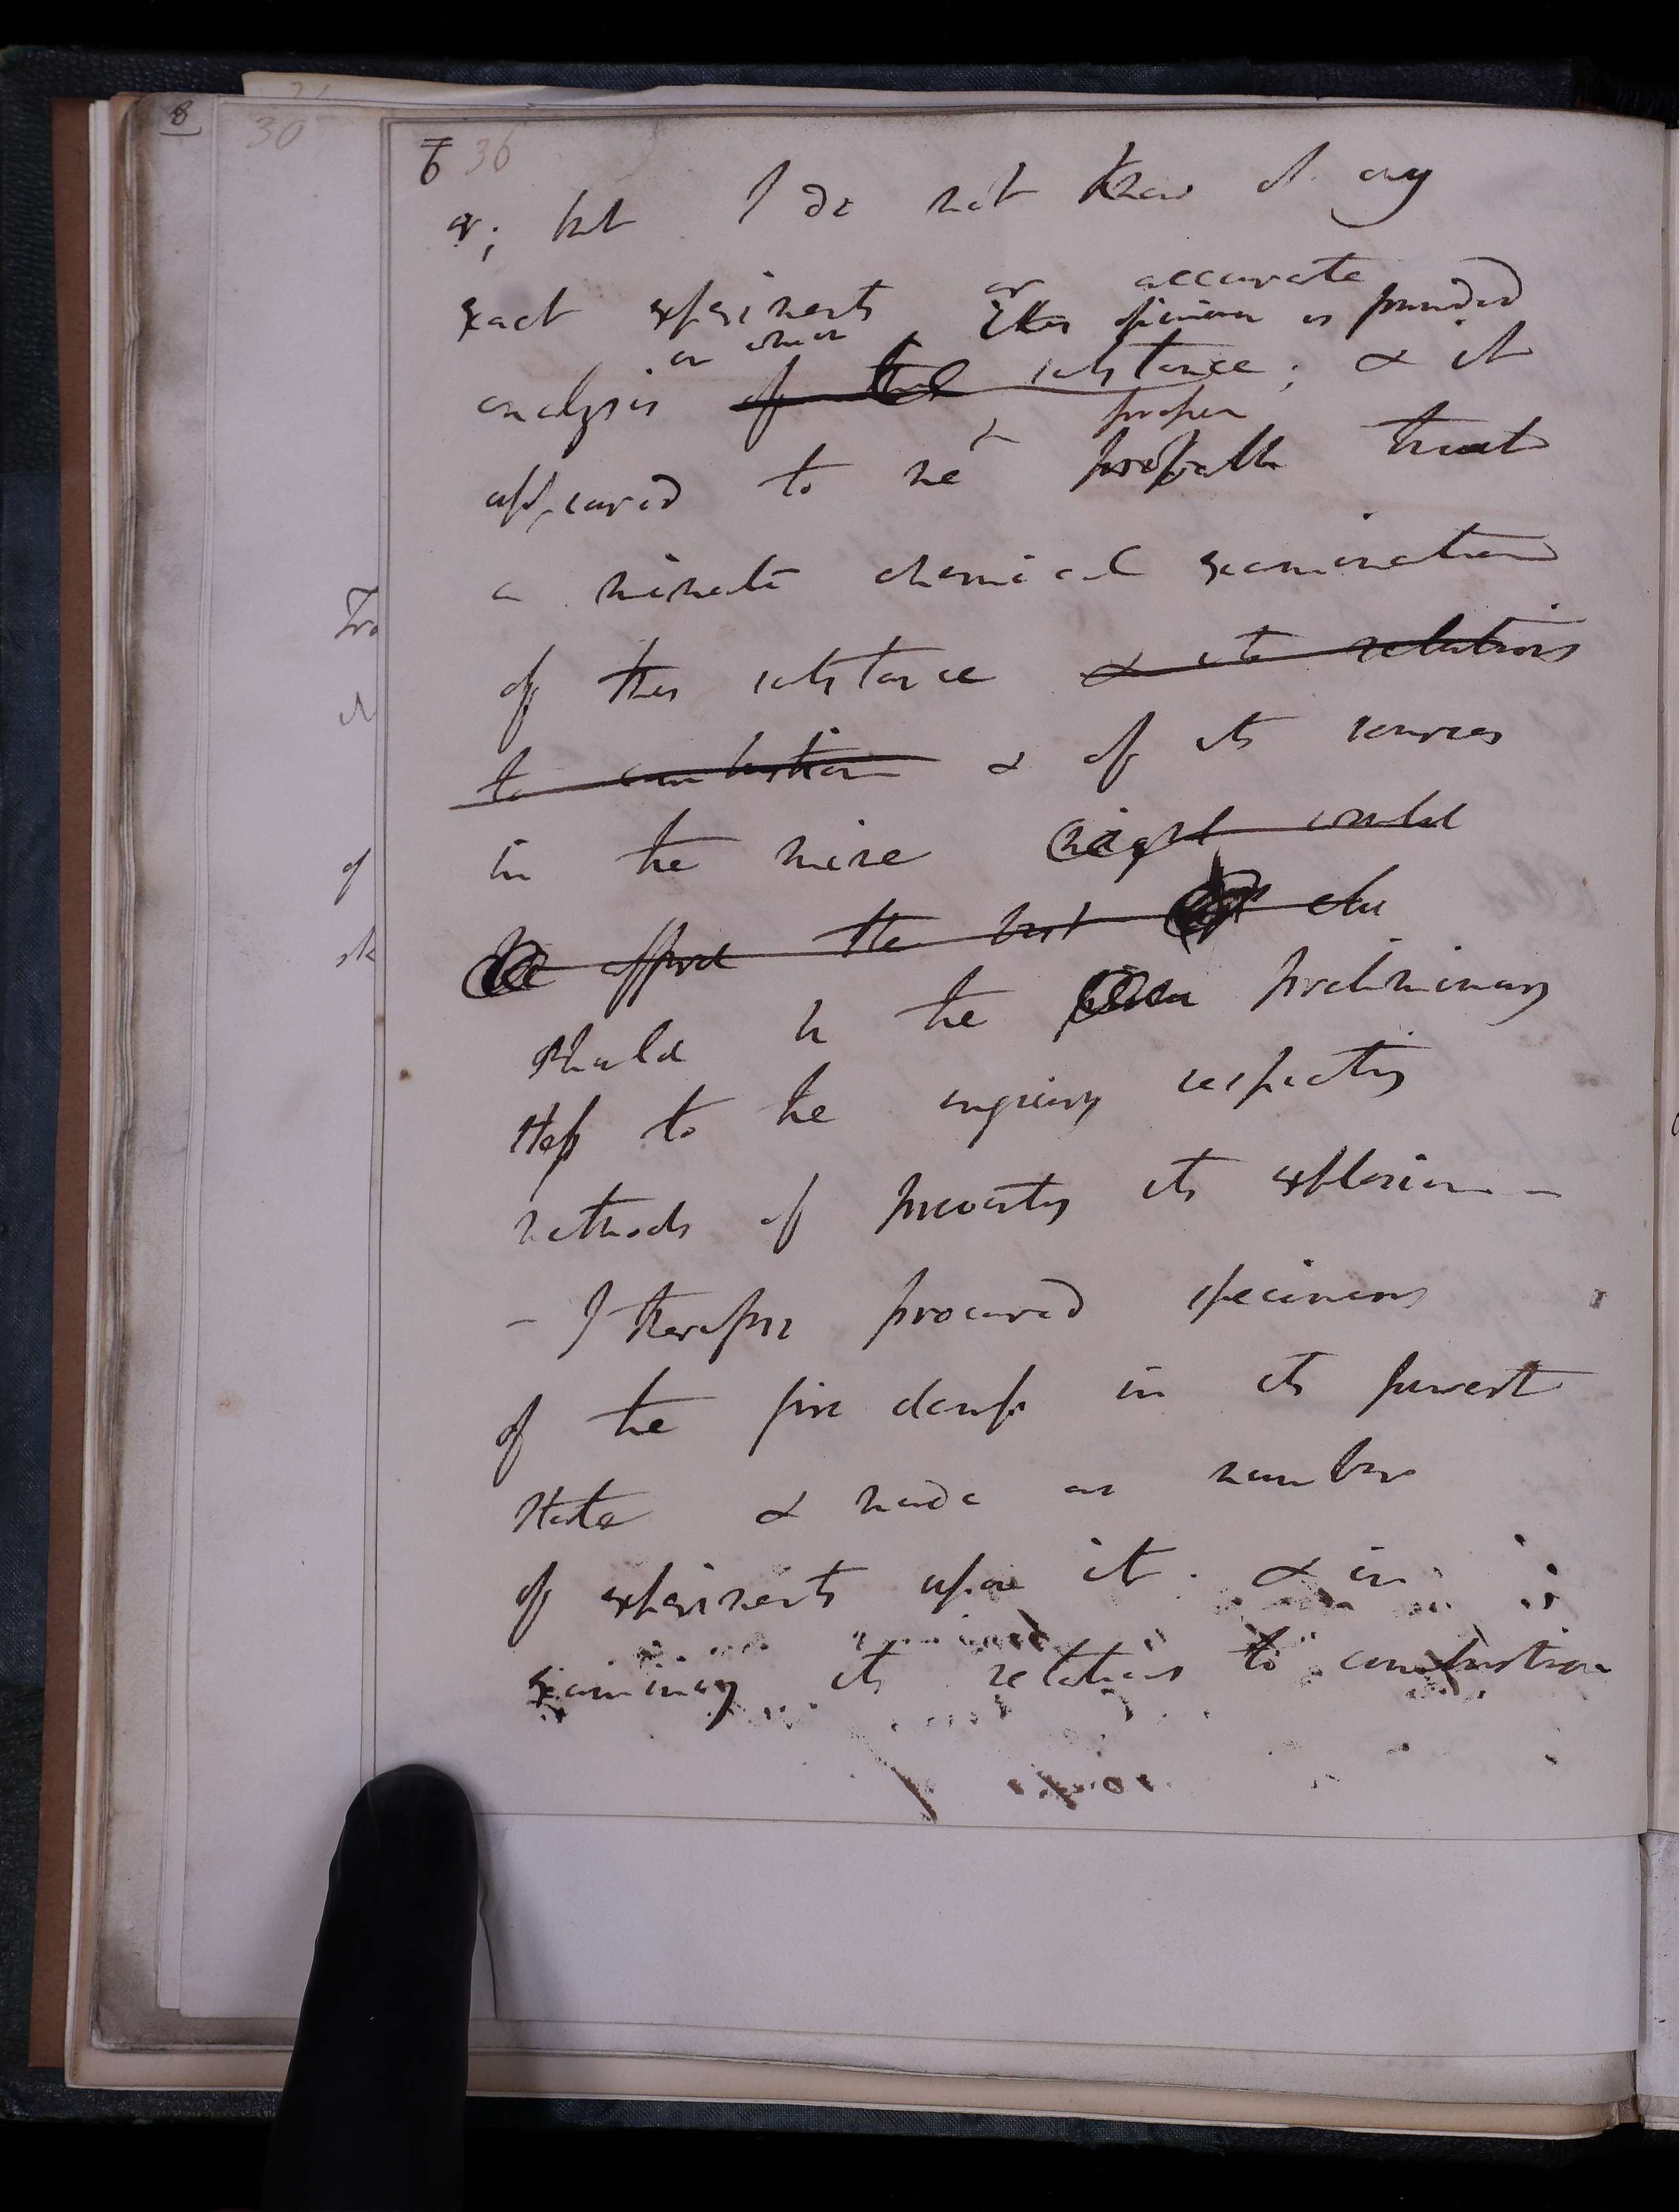 8
30
6 36
; but I do not know of any
or accurate
exact experiments this opinion is founded
on which
analysis of this substance; & it
& proper
appeared to me probable that
a minute chemical examination
of this substance & its relations
to combustion & of its sources
in the mine might would
afford the best clue
should be the preliminary
step to the enquiry respecting
methods of preventing its explosion -
- I therefore procured specimens
of the fire damp in its purest
state & made a number
of experiments upon it. & in
examining its relations to combustion